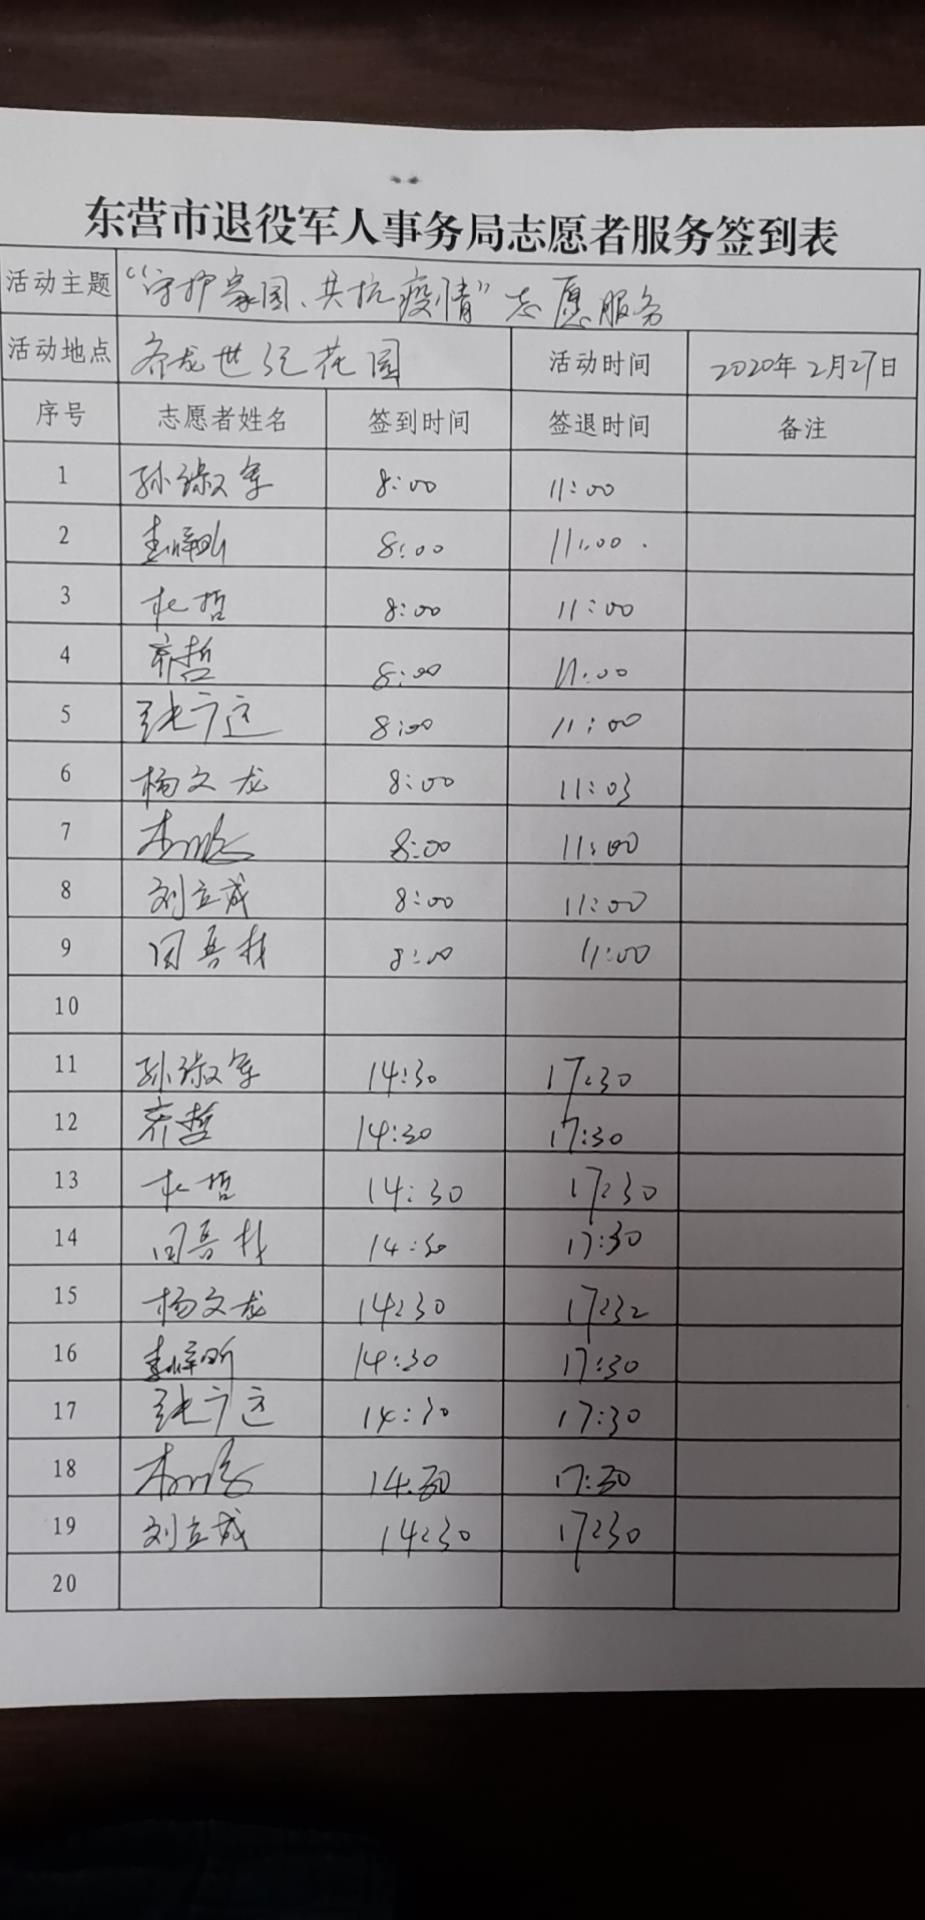 东营市退役军人事务局志愿者服务签到表
活动主题 “守护家园、共抗疫情”志愿服务
活动地点 齐龙世纪花园 活动时间 2020年2月27日
序号 志愿者姓名 签到时间 签退时间 备注
1 孙淑军 8:00 11:00
2 8:00 11:00
3 杜哲 8:00 11:00
4 齐哲 8:00 11:00
5 张广远 8:00 11:00
6 杨文龙 8:00 11:03
7 8:00 11:00
8 刘立成 8:00 11:00
9 8:00 11:00
10
11 孙淑军 14:30 17:30
12 齐哲 14:30 17:30
13 杜哲 14:30 17:30
14 14:30 17:30
15 杨文龙 14:30 17:32
16 14:30 17:30
17 张广远 14:30 17:30
18 14:30 17:30
19 刘立成 14:30 17:30
20